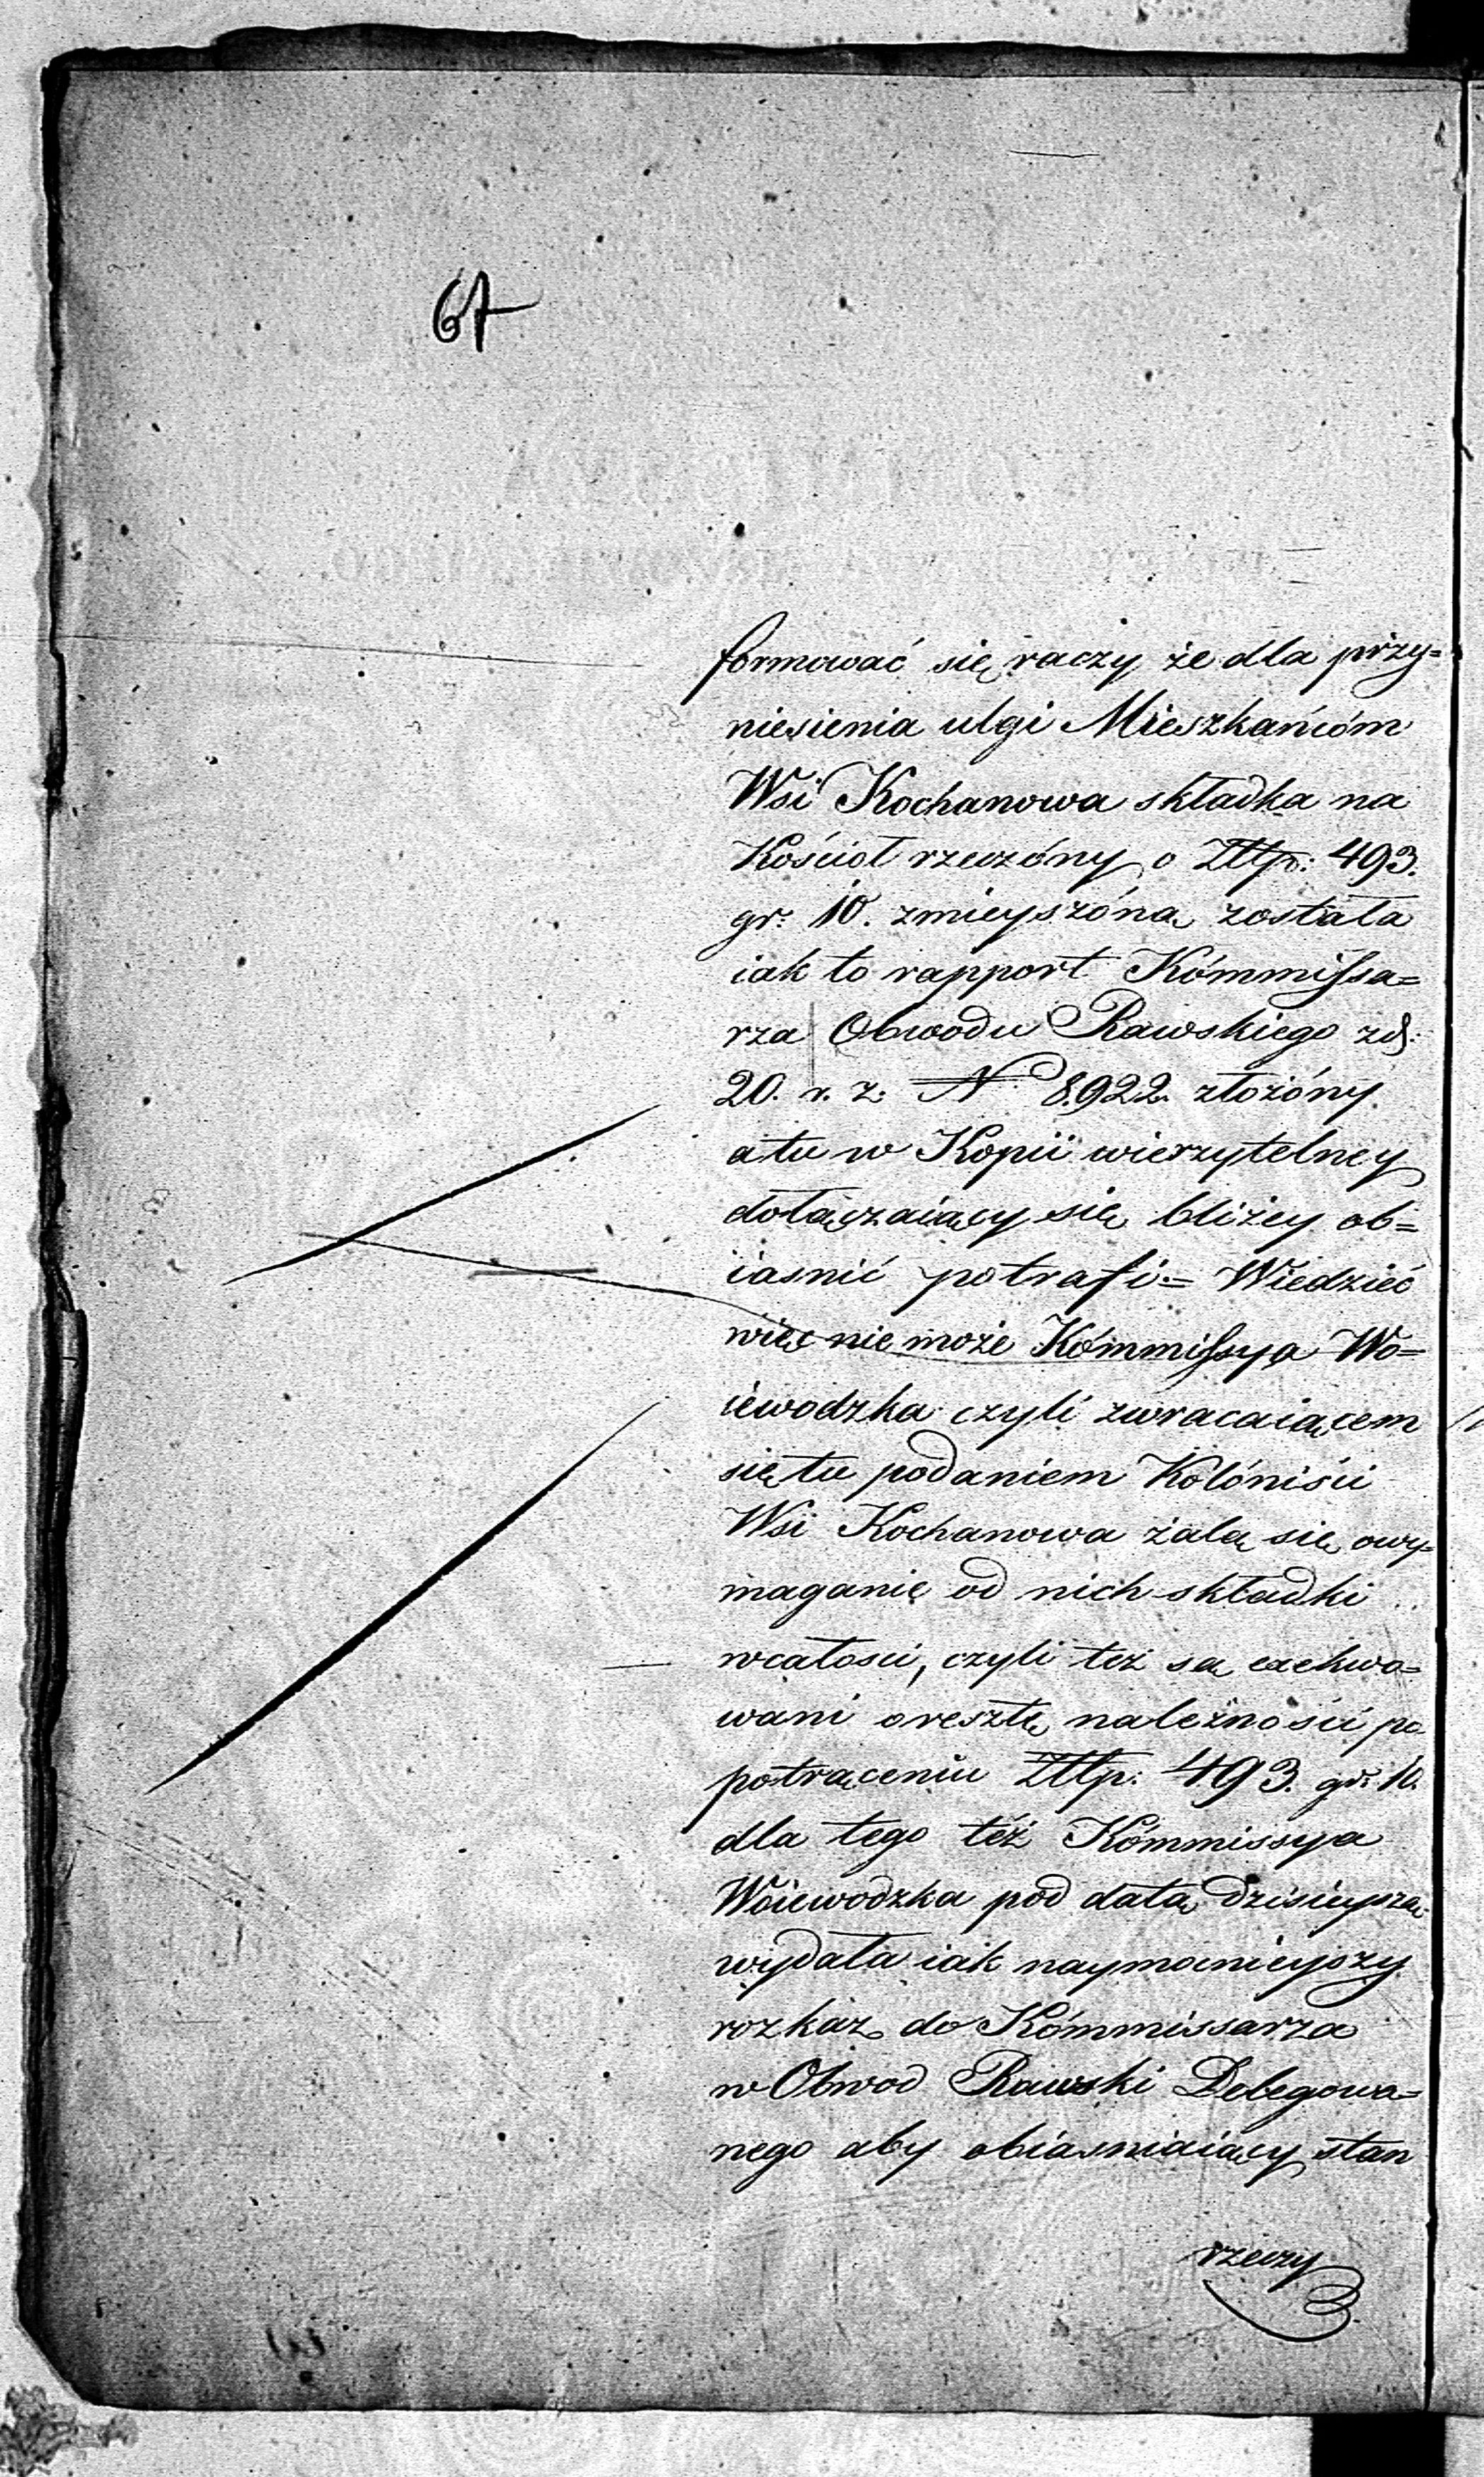 67
formować się raczy że dla przy=
niesienia ulgi Mieszkańcóm
Wsi Kochanowa składka na
Kościoł rzeczóny o Złlp: 493.
gr: 10. zmieyszóną została
iak to rapport Kómmissa=
rza Obwodu Rawskiego zd:
20. r. z. N 8922. złożóny
a tu w Kopii wierzytelney
dołączaiący się bliżey ob=
iasnić potrafi = Wiedzieć
więc nie może Kómmissya Wo=
iewodzka czyli zwracaiącem
się tu podaniem Kolóniści
Wsi Kochanowa żalą się owy=
maganie od nich składki
wcałosci, czyli też są exekwo=
wani oresztę należnosci po
potrąceniu Złlp: 493. gr: 10.
dla tego też Kómmissya
Woiewodzka pod datą dzisieyszą
wydała iak naymocnieyszy
rozkaz do Kómmissarza
w Obwod Rawski Delegowa=
nego aby obiasniaiący stan
rzeczy